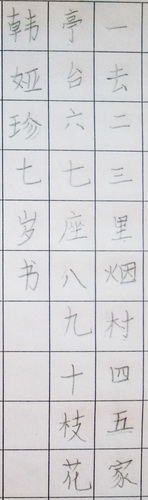 一去二三里烟村四五家
亭台六七座八九十枝花
韩娅珍七岁书